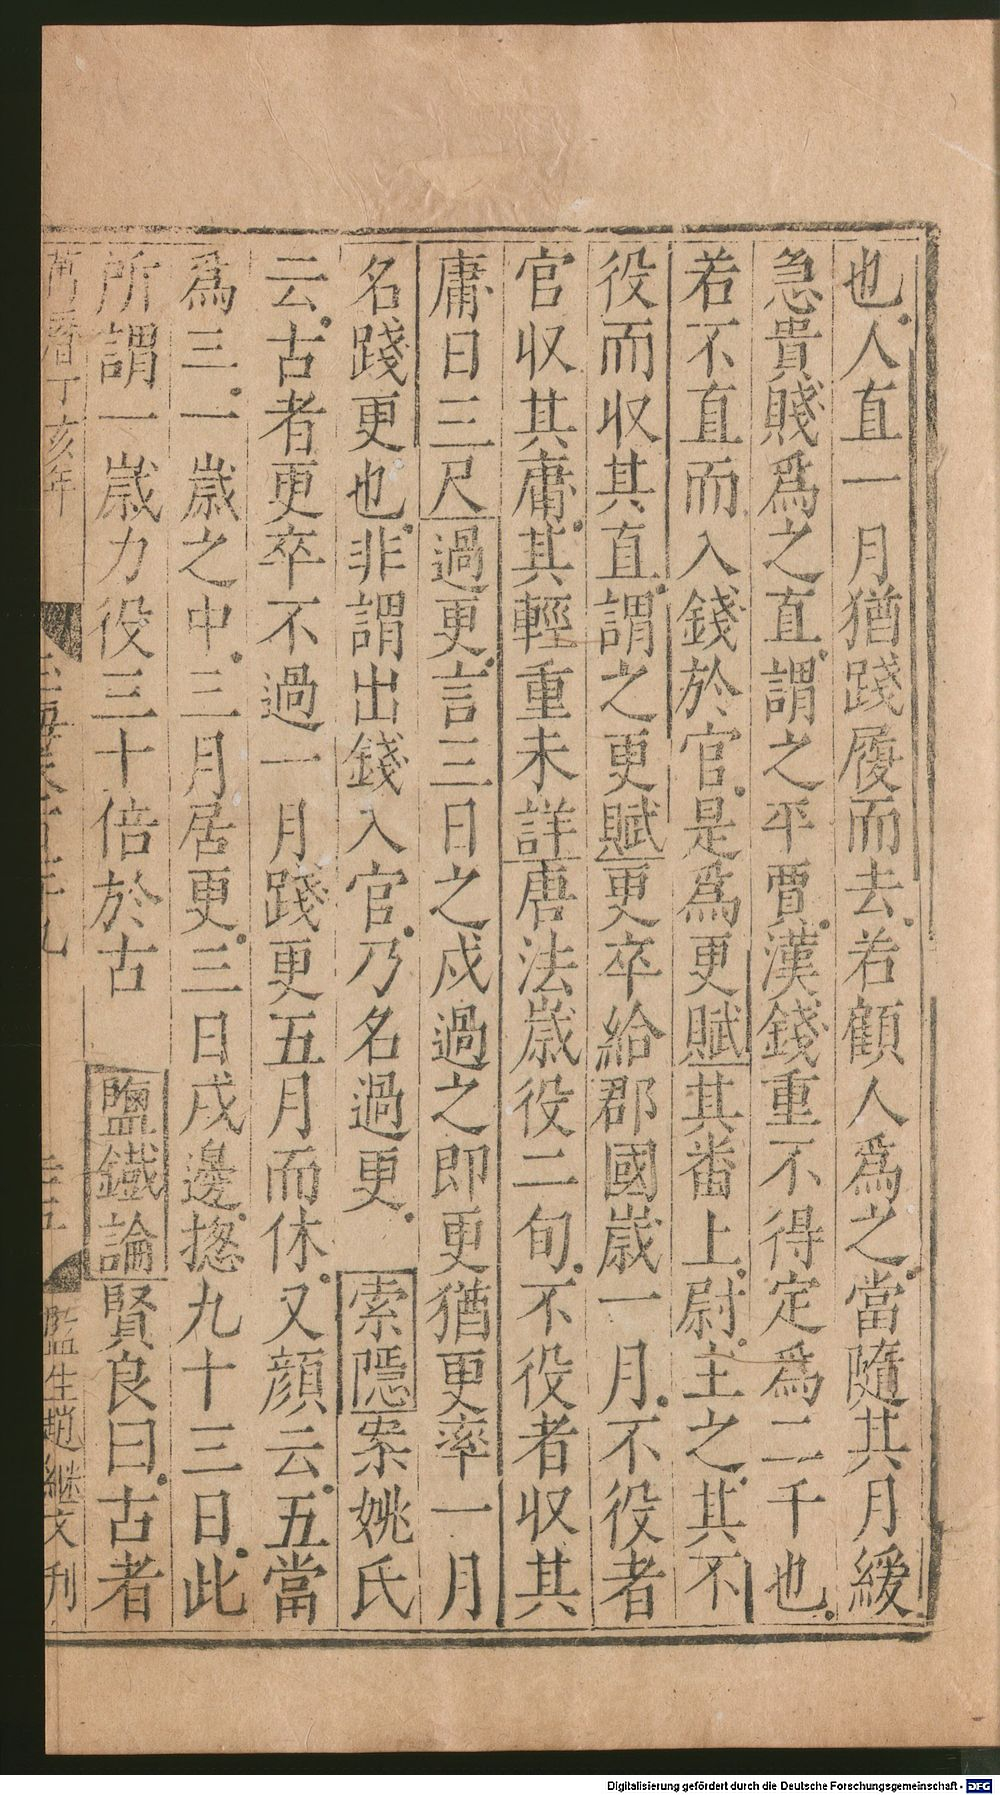 也人直一月猶踐履而去若顧人爲之當隨其月緩
急貴賤爲之直謂之平賈漢錢重不得定爲二千也
若不直而入錢於官是爲更賦其番上尉主之其不
役而收其直謂之更賦更卒給郡國歲一月不役者
官收其庸其輕重未詳唐法歲役二旬不役者收其
庸日三尺過更言三日之戍過之即更猶更率一月
名踐更也非謂出錢入官乃名過更 索隱案姚氏
云古者更卒不過一月踐更五月而休又顏云五當
爲三一歲之中三月居更三日戍邊揔九十三日此
所謂一歲力役三十倍於古 鹽鐵論賢良曰古者
萬曆丁亥年
監生趙繼文刊
Digitalisierung gefördert durch die Deutsche Forschungsgemeinschaft - DFG